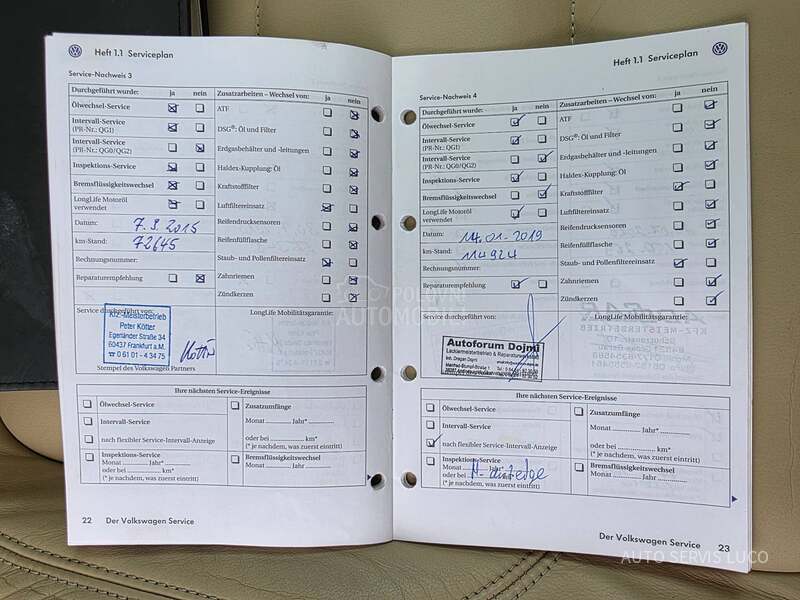 Heft 1.1 Serviceplan
Service-Nachweis 3
Durchgeführt wurde: ja nein
Ölwechsel-Service
Intervall-Service
(PR-Nr.: QG1)
Intervall-Service
(PR-Nr.: QG0/QG2)
Inspektions-Service
Bremsflüssigkeitswechsel
LongLife Motoröl
verwendet
Datum: 7.9.2015
km-Stand: 72645
Rechnungsnummer:
Reparaturempfehlung
Zusatzarbeiten – Wechsel von: ja nein
ATF
DSG®: Öl und Filter
Erdgasbehälter und -leitungen
Haldex-Kupplung: Öl
Kraftstofffilter
Luftfiltereinsatz
Reifendrucksensoren
Reifenfüllflasche
Staub- und Pollenfiltereinsatz
Zahnriemen
Zündkerzen
Service durchgeführt von:
LongLife Mobilitätsgarantie:
Kfz-Meisterbetrieb
Peter Kötter
Egerländer Straße 34
60437 Frankfurt a.M.
☎ 0 61 01 - 4 34 75
Kötter
Stempel des Volkswagen Partners
Ihre nächsten Service-Ereignisse
Ölwechsel-Service
Intervall-Service
nach flexibler Service-Intervall-Anzeige
Inspektions-Service
Monat Jahr*
oder bei km*
(* je nachdem, was zuerst eintritt)
Zusatzumfänge
Monat Jahr*
oder bei km*
(* je nachdem, was zuerst eintritt)
Bremsflüssigkeitswechsel
Monat Jahr
22 Der Volkswagen Service
Heft 1.1 Serviceplan
Service-Nachweis 4
Durchgeführt wurde: ja nein
Ölwechsel-Service
Intervall-Service
(PR-Nr.: QG1)
Intervall-Service
(PR-Nr.: QG0/QG2)
Inspektions-Service
Bremsflüssigkeitswechsel
LongLife Motoröl
verwendet
Datum: 14.01.2019
km-Stand: 114924
Rechnungsnummer:
Reparaturempfehlung
Zusatzarbeiten – Wechsel von: ja nein
ATF
DSG®: Öl und Filter
Erdgasbehälter und -leitungen
Haldex-Kupplung: Öl
Kraftstofffilter
Luftfiltereinsatz
Reifendrucksensoren
Reifenfüllflasche
Staub- und Pollenfiltereinsatz
Zahnriemen
Zündkerzen
Service durchgeführt von:
LongLife Mobilitätsgarantie:
Autoforum Dojmi
Lackiermeisterbetrieb & Reparaturwerkstatt
Inh. Dragan Dojmi
Ihre nächsten Service-Ereignisse
Ölwechsel-Service
Intervall-Service
nach flexibler Service-Intervall-Anzeige
Inspektions-Service
Monat Jahr*
oder bei km*
(* je nachdem, was zuerst eintritt)
Zusatzumfänge
Monat Jahr*
oder bei km*
(* je nachdem, was zuerst eintritt)
Bremsflüssigkeitswechsel
Monat Jahr
Der Volkswagen Service 23
POLOVNI
AUTOMOBILI
AUTO SERVIS LUCO